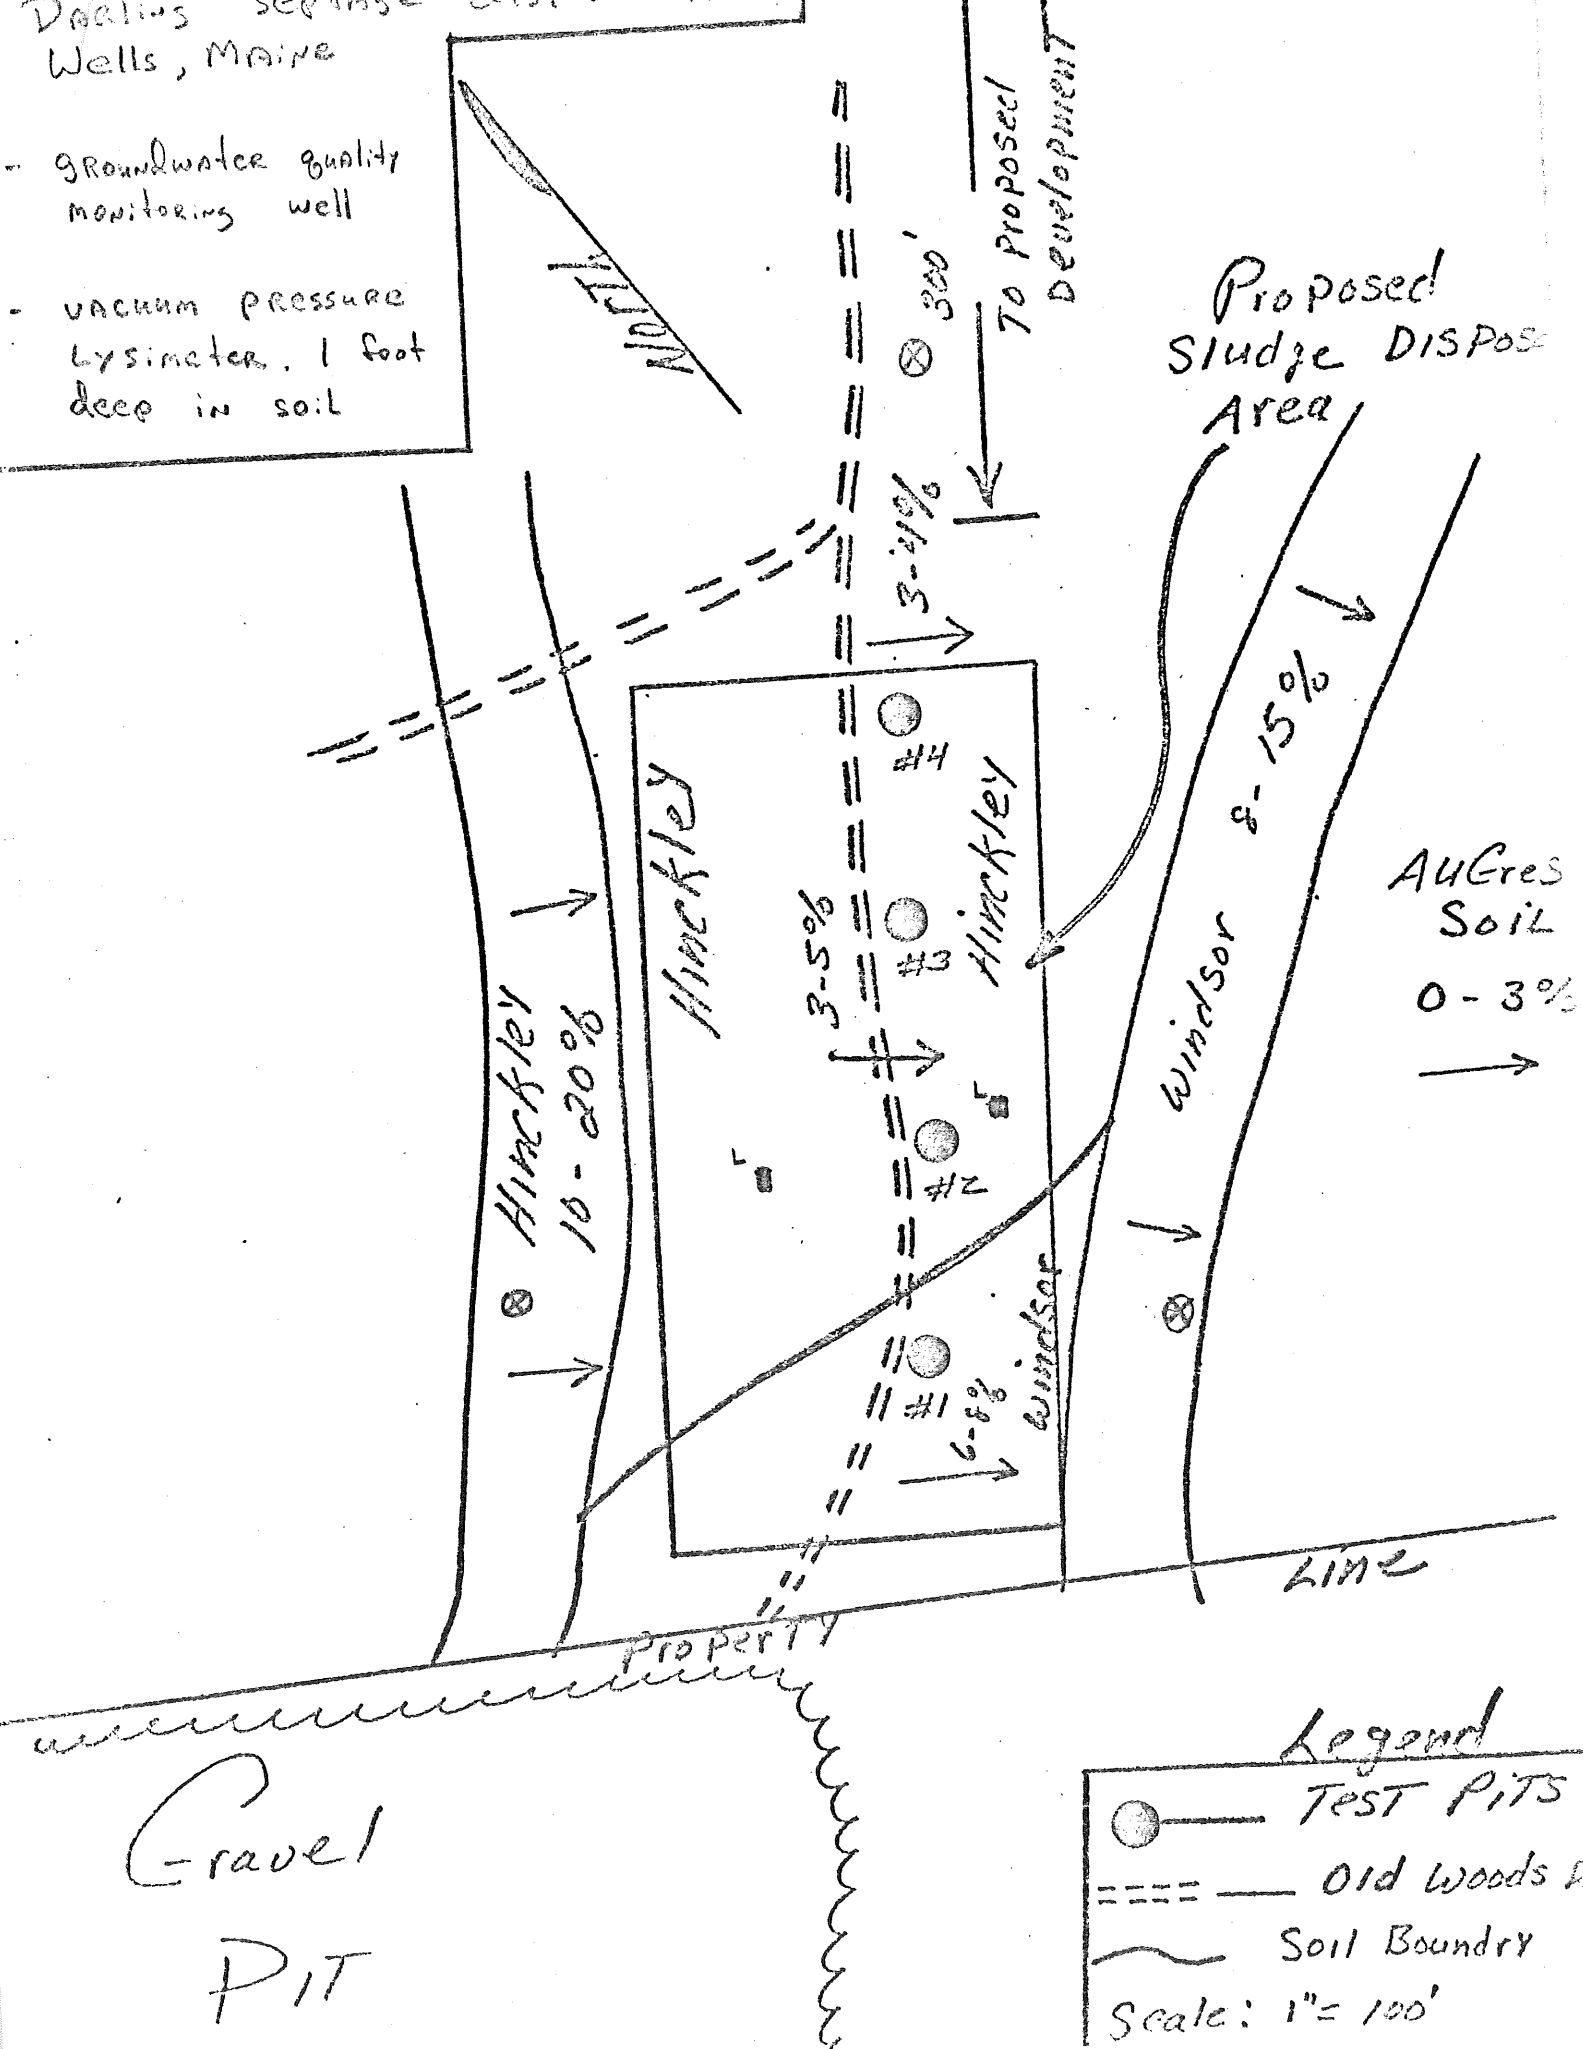 Darling Septage
Wells, Maine
- groundwater quality
monitoring well
- vacuum pressure
Lysimeter. 1 foot
deep in soil
North
300'
To Proposed
Development
Proposed
Sludge Dispos
Area
3-4%
#4
Hinckley
Hinckley
3-5%
#3
8-15%
Windsor
AuGres
Soil
0-3%
Hinckley
10-20%
#2
#1
6-8%
Windsor
Property Line
Gravel
Pit
Legend
Test Pits
Old Woods
Soil Boundry
Scale: 1"= 100'